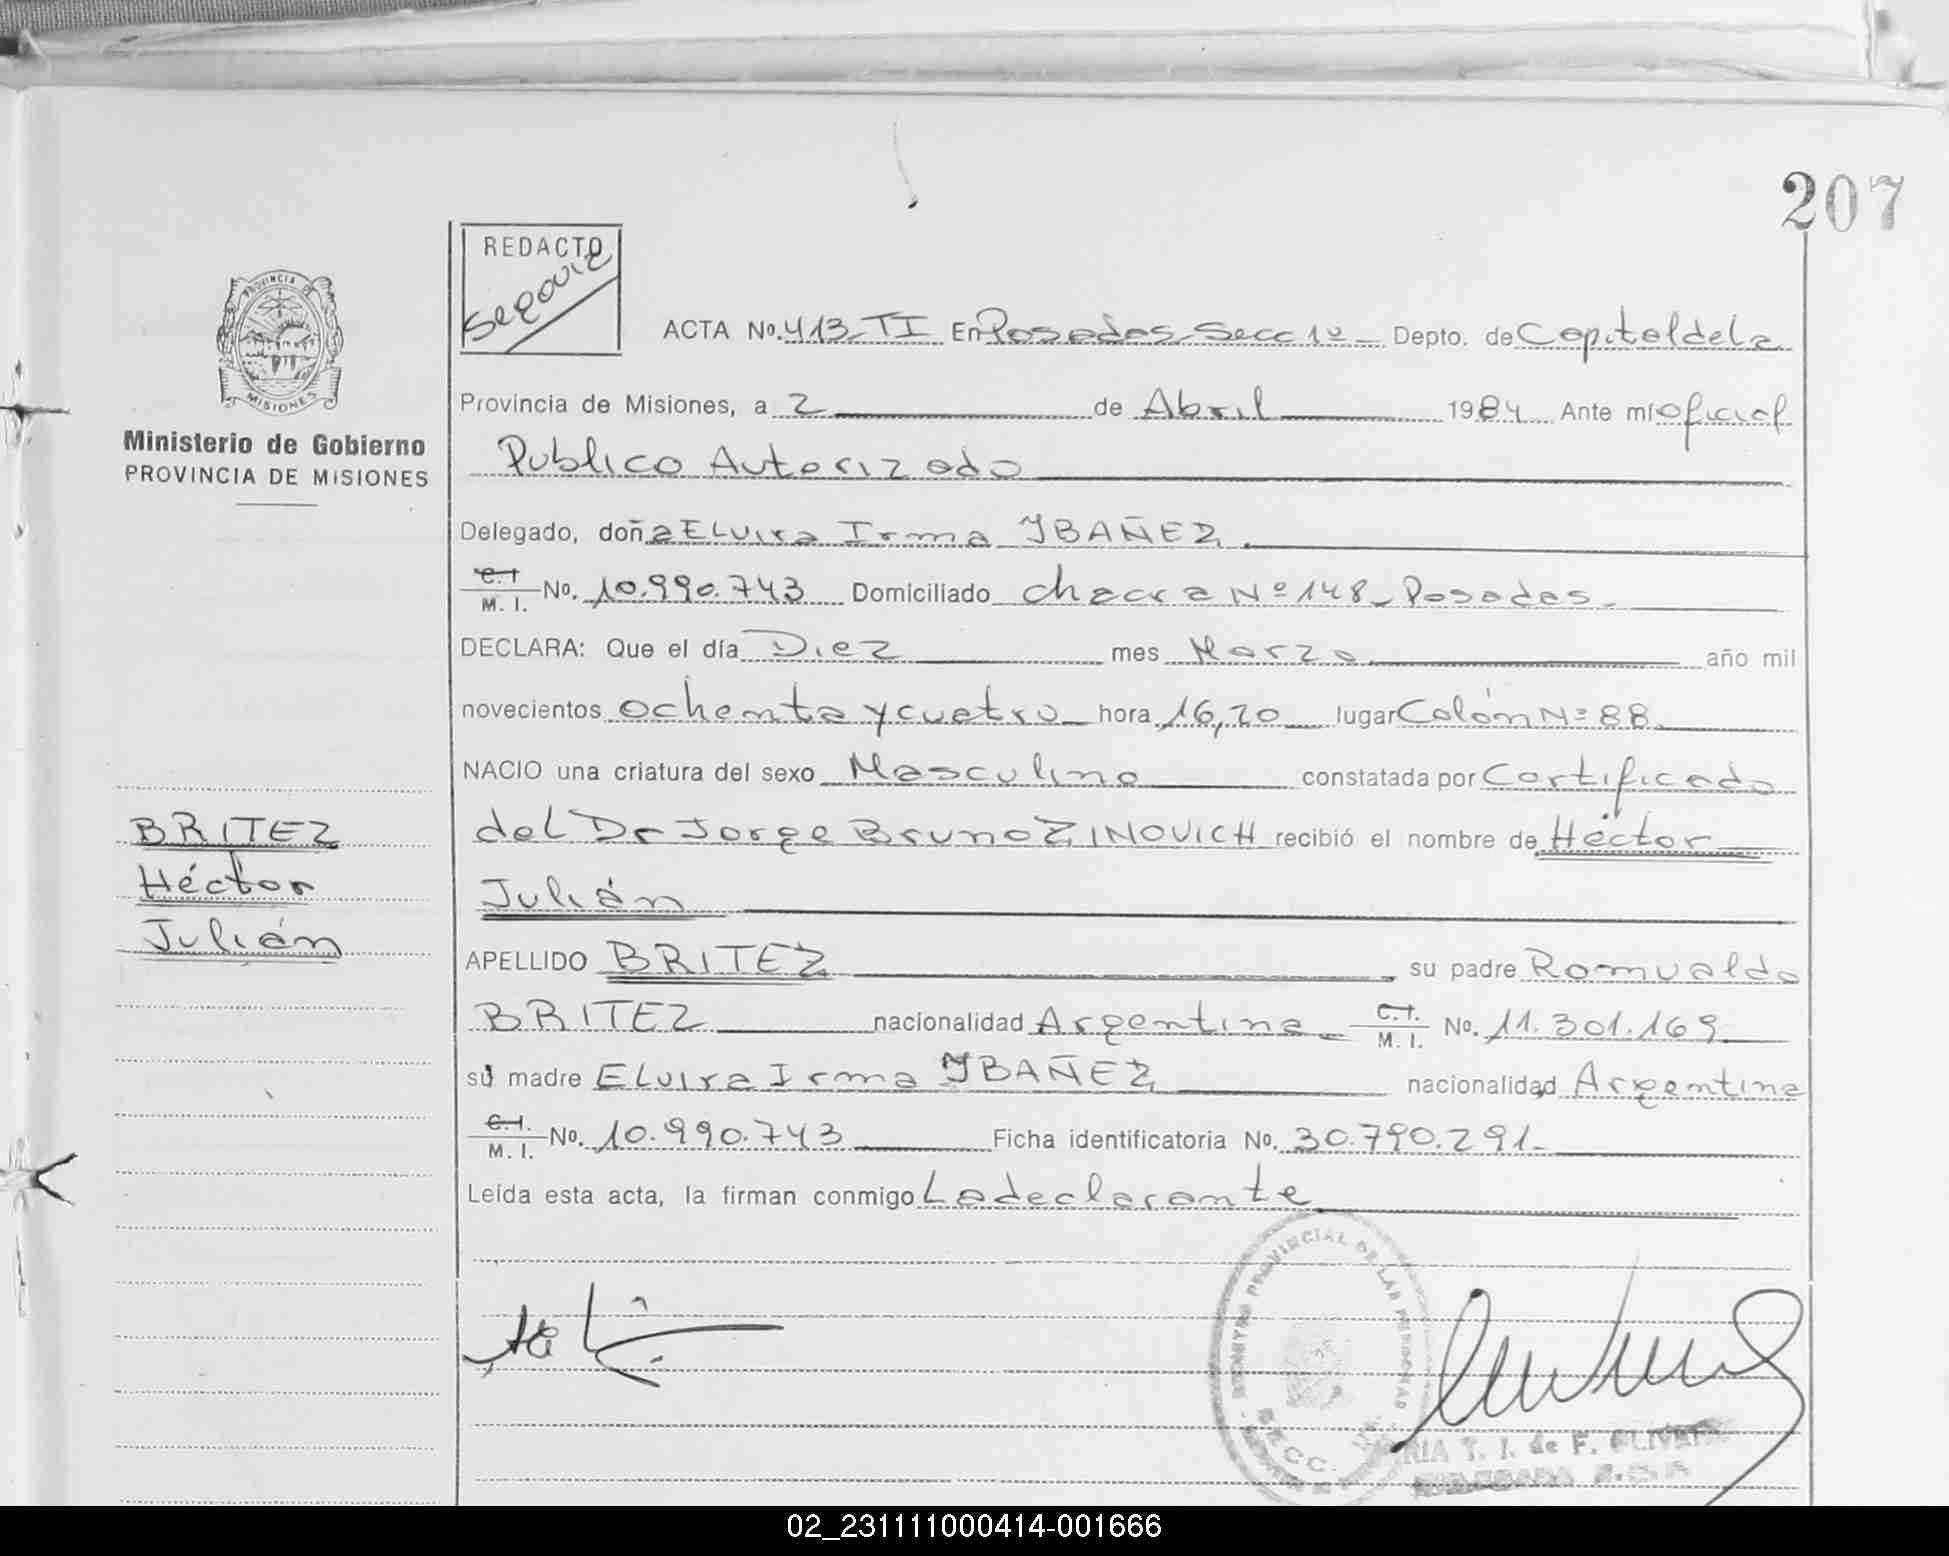 207
REDACTO
Segovia
PROVINCIA DE
MISIONES
Ministerio de Gobierno
PROVINCIA DE MISIONES
ACTA No. 413-TI En Posadas-Secc 1º- Depto. de Capital de la
Provincia de Misiones, a 2 de Abril 1984 Ante mí oficial
Publico Autorizado
Delegado, doña ELvira Irma YBAÑEZ
C.I
M. I. No. 10.990.743 Domiciliado chacra Nº 148-Posadas.
DECLARA: Que el día Diez mes Marzo año mil
novecientos ochenta y cuatro hora 16,20 lugar Colón Nº 88
NACIO una criatura del sexo Masculino constatada por Certificado
BRITEZ
Héctor
Julián
del Dr Jorge Bruno ZINOVICH recibió el nombre de Héctor
Julián
APELLIDO BRITEZ su padre Romualdo
BRITEZ nacionalidad Argentina C.I. M. I. No. 11.301.169
su madre ELvira Irma YBAÑEZ nacionalidad Argentina
C.I.
M. I. No. 10.990.743 Ficha identificatoria No. 30.790.291-
Leída esta acta, la firman conmigo La declarante
REGISTRO PROVINCIAL DE LAS PERSONAS
T. I. de F.
02_231111000414-001666